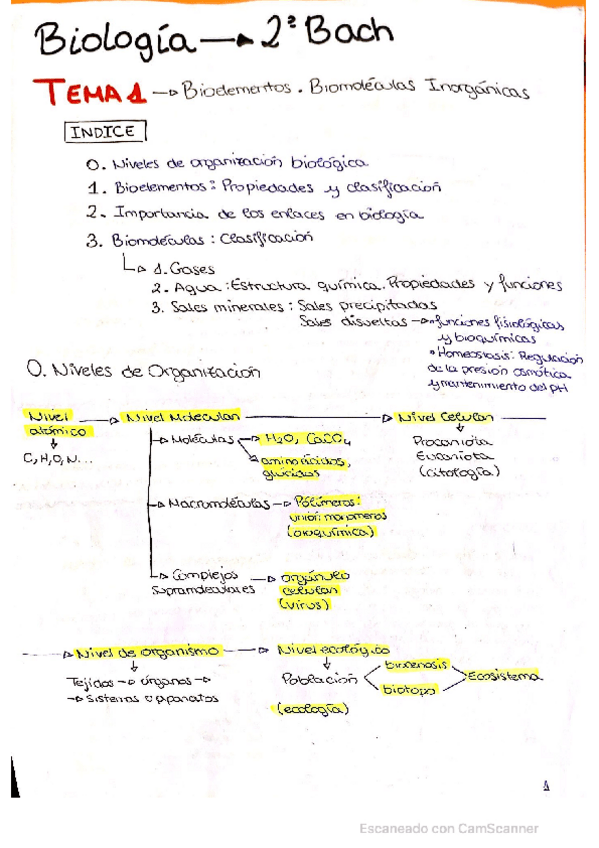 Biología → 2º Bach
TEMA 1 → Bioelementos. Biomoléculas Inorgánicas
INDICE
0. Niveles de organización biológica
1. Bioelementos: Propiedades y clasificación
2. Importancia de los enlaces en biología
3. Biomoléculas: Clasificación
↳ 1. Gases
2. Agua: Estructura química. Propiedades y funciones
3. Sales minerales: Sales precipitadas
Sales disueltas → • funciones fisiológicas
y bioquímicas
• Homeostasis: Regulación
de la presión osmótica
y mantenimiento del pH
0. Niveles de Organización
Nivel atómico → Nivel Molecular → Nivel Celular
C, H, O, N...
→ Moléculas → H2O, CaCO4
aminoácidos, glúcidos
Procariota
Eucariota
(citología)
→ Macromoléculas → Polímeros:
unión monómeros
(bioquímica)
→ Complejos supramoleculares → orgánulo
celular
(virus)
→ Nivel de organismo → Nivel ecológico
Tejidos → órganos →
→ Sistemas o aparatos
Población
biocenosis
biotopo
Ecosistema
(ecología)
1
Escaneado con CamScanner